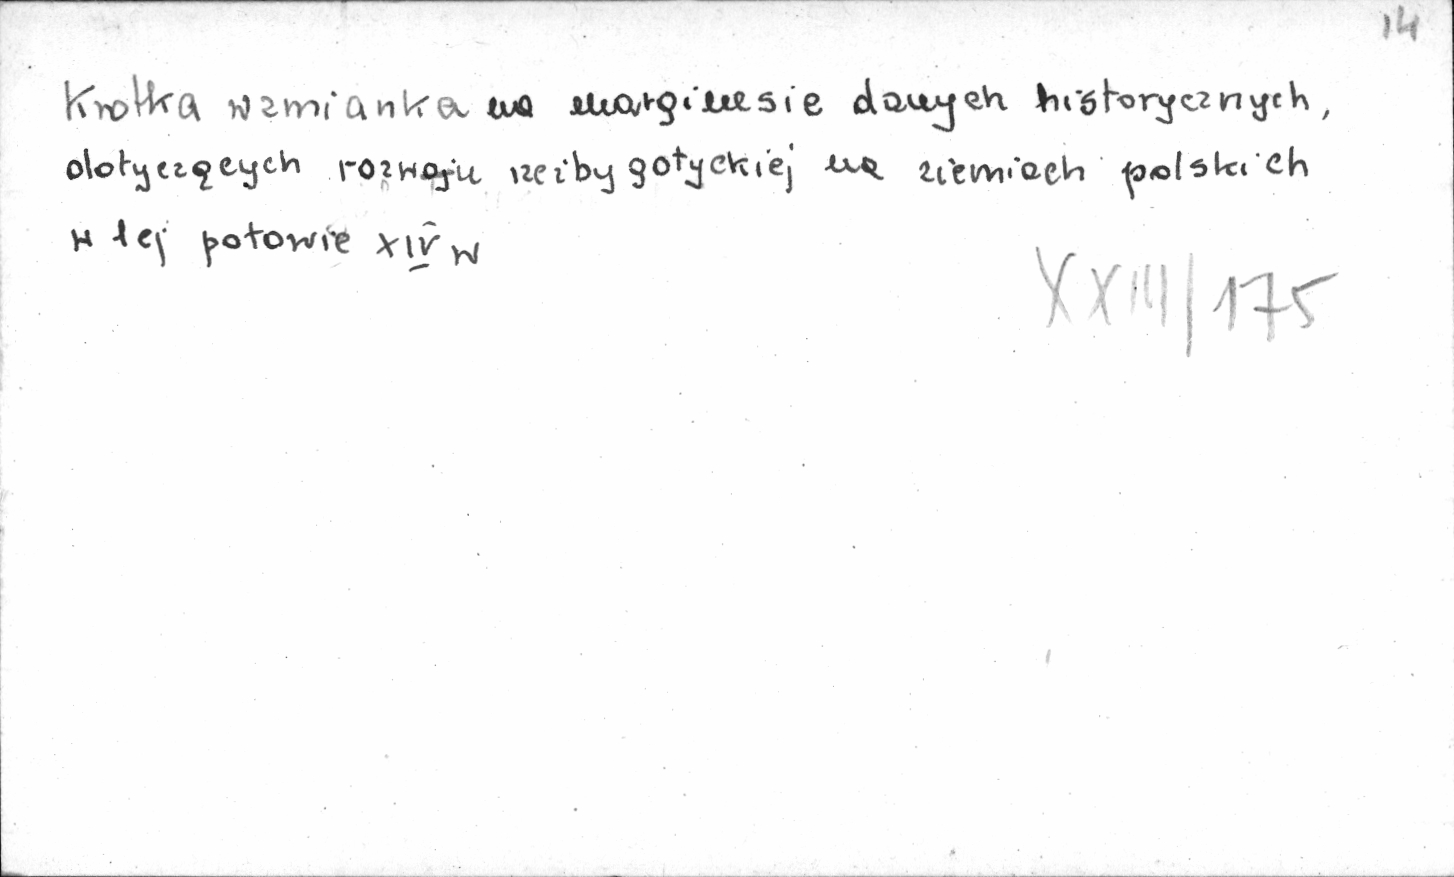 14
Krotka wzmianka na marginesie danych historycznych,
dotyczących rozwoju rzeźby gotyckiej na ziemiach polskich
w 1ej połowie XIV w
XXIII/175